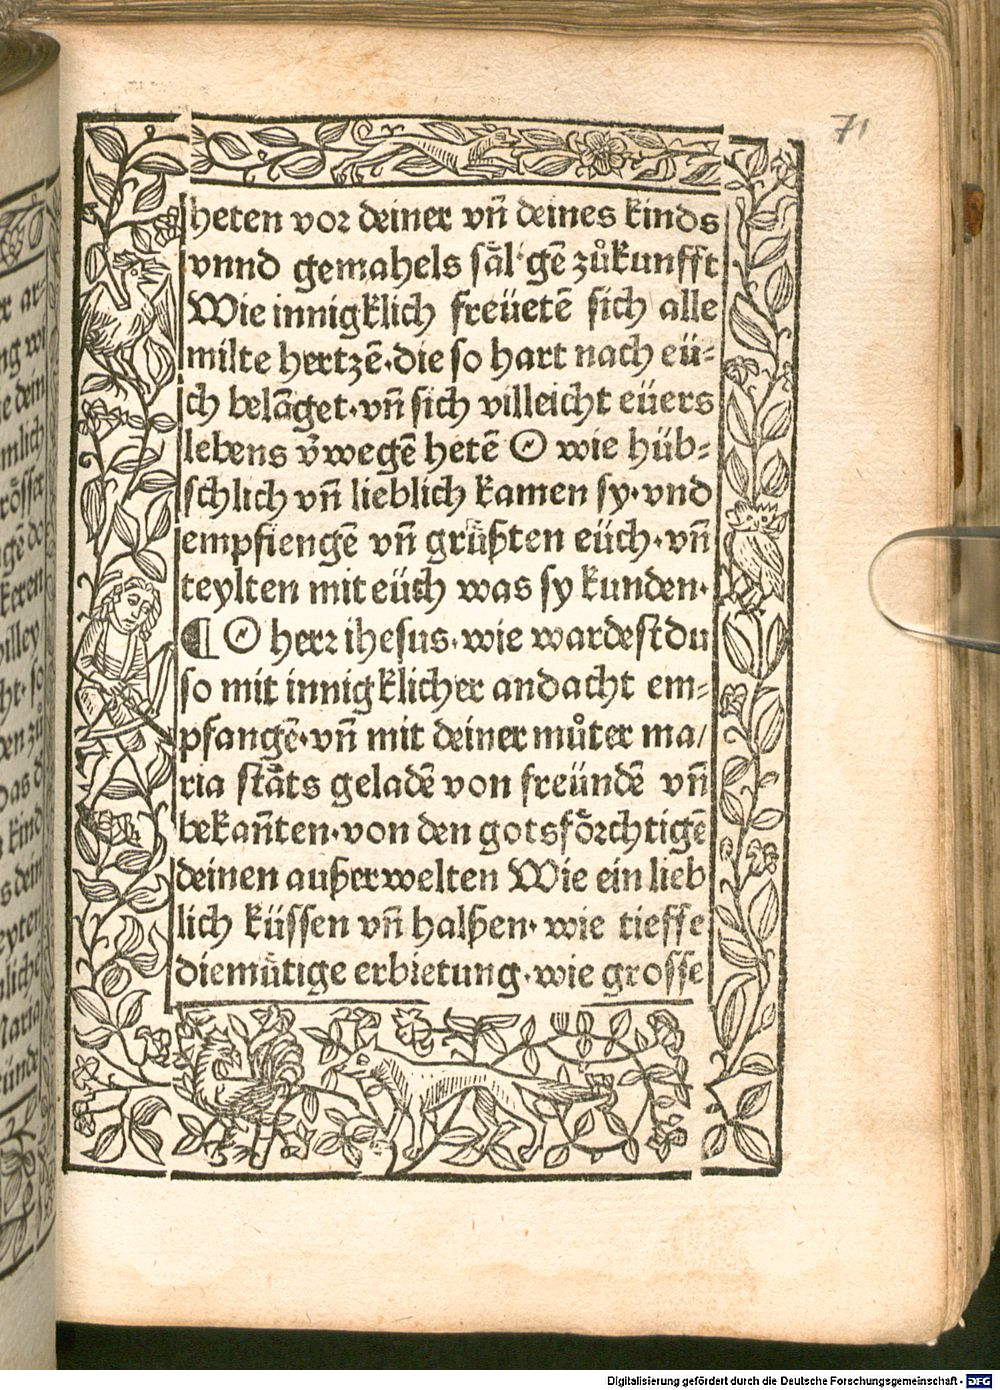 71
heten vor deiner vn̄ deines kinds
vnnd gemahels såligē zůkunfft
Wie innigklich freüetē sich alle
milte hertzē·die so hart nach eü⸗
ch belāget·vn̄ sich villeicht eüers
lebens v̄wegē hetē O wie hüb⸗
schlich vn̄ lieblich kamen sy·vnd
empfiengē vn̄ grüßten eüch·vn̄
teylten mit eüch was sy kunden·
¶ O herr ihesus·wie wardest du
so mit innigklicher andacht em⸗
pfangē·vn̄ mit deiner můter ma/
ria ståts geladē von freündē vn̄
bekan̄ten·von den gotsförchtigē
deinen außerwelten Wie ein lieb
lich küssen vn̄ halßen· wie tieffe
diemütige erbietung·wie grosse
Digitalisierung gefördert durch die Deutsche Forschungsgemeinschaft - DFG